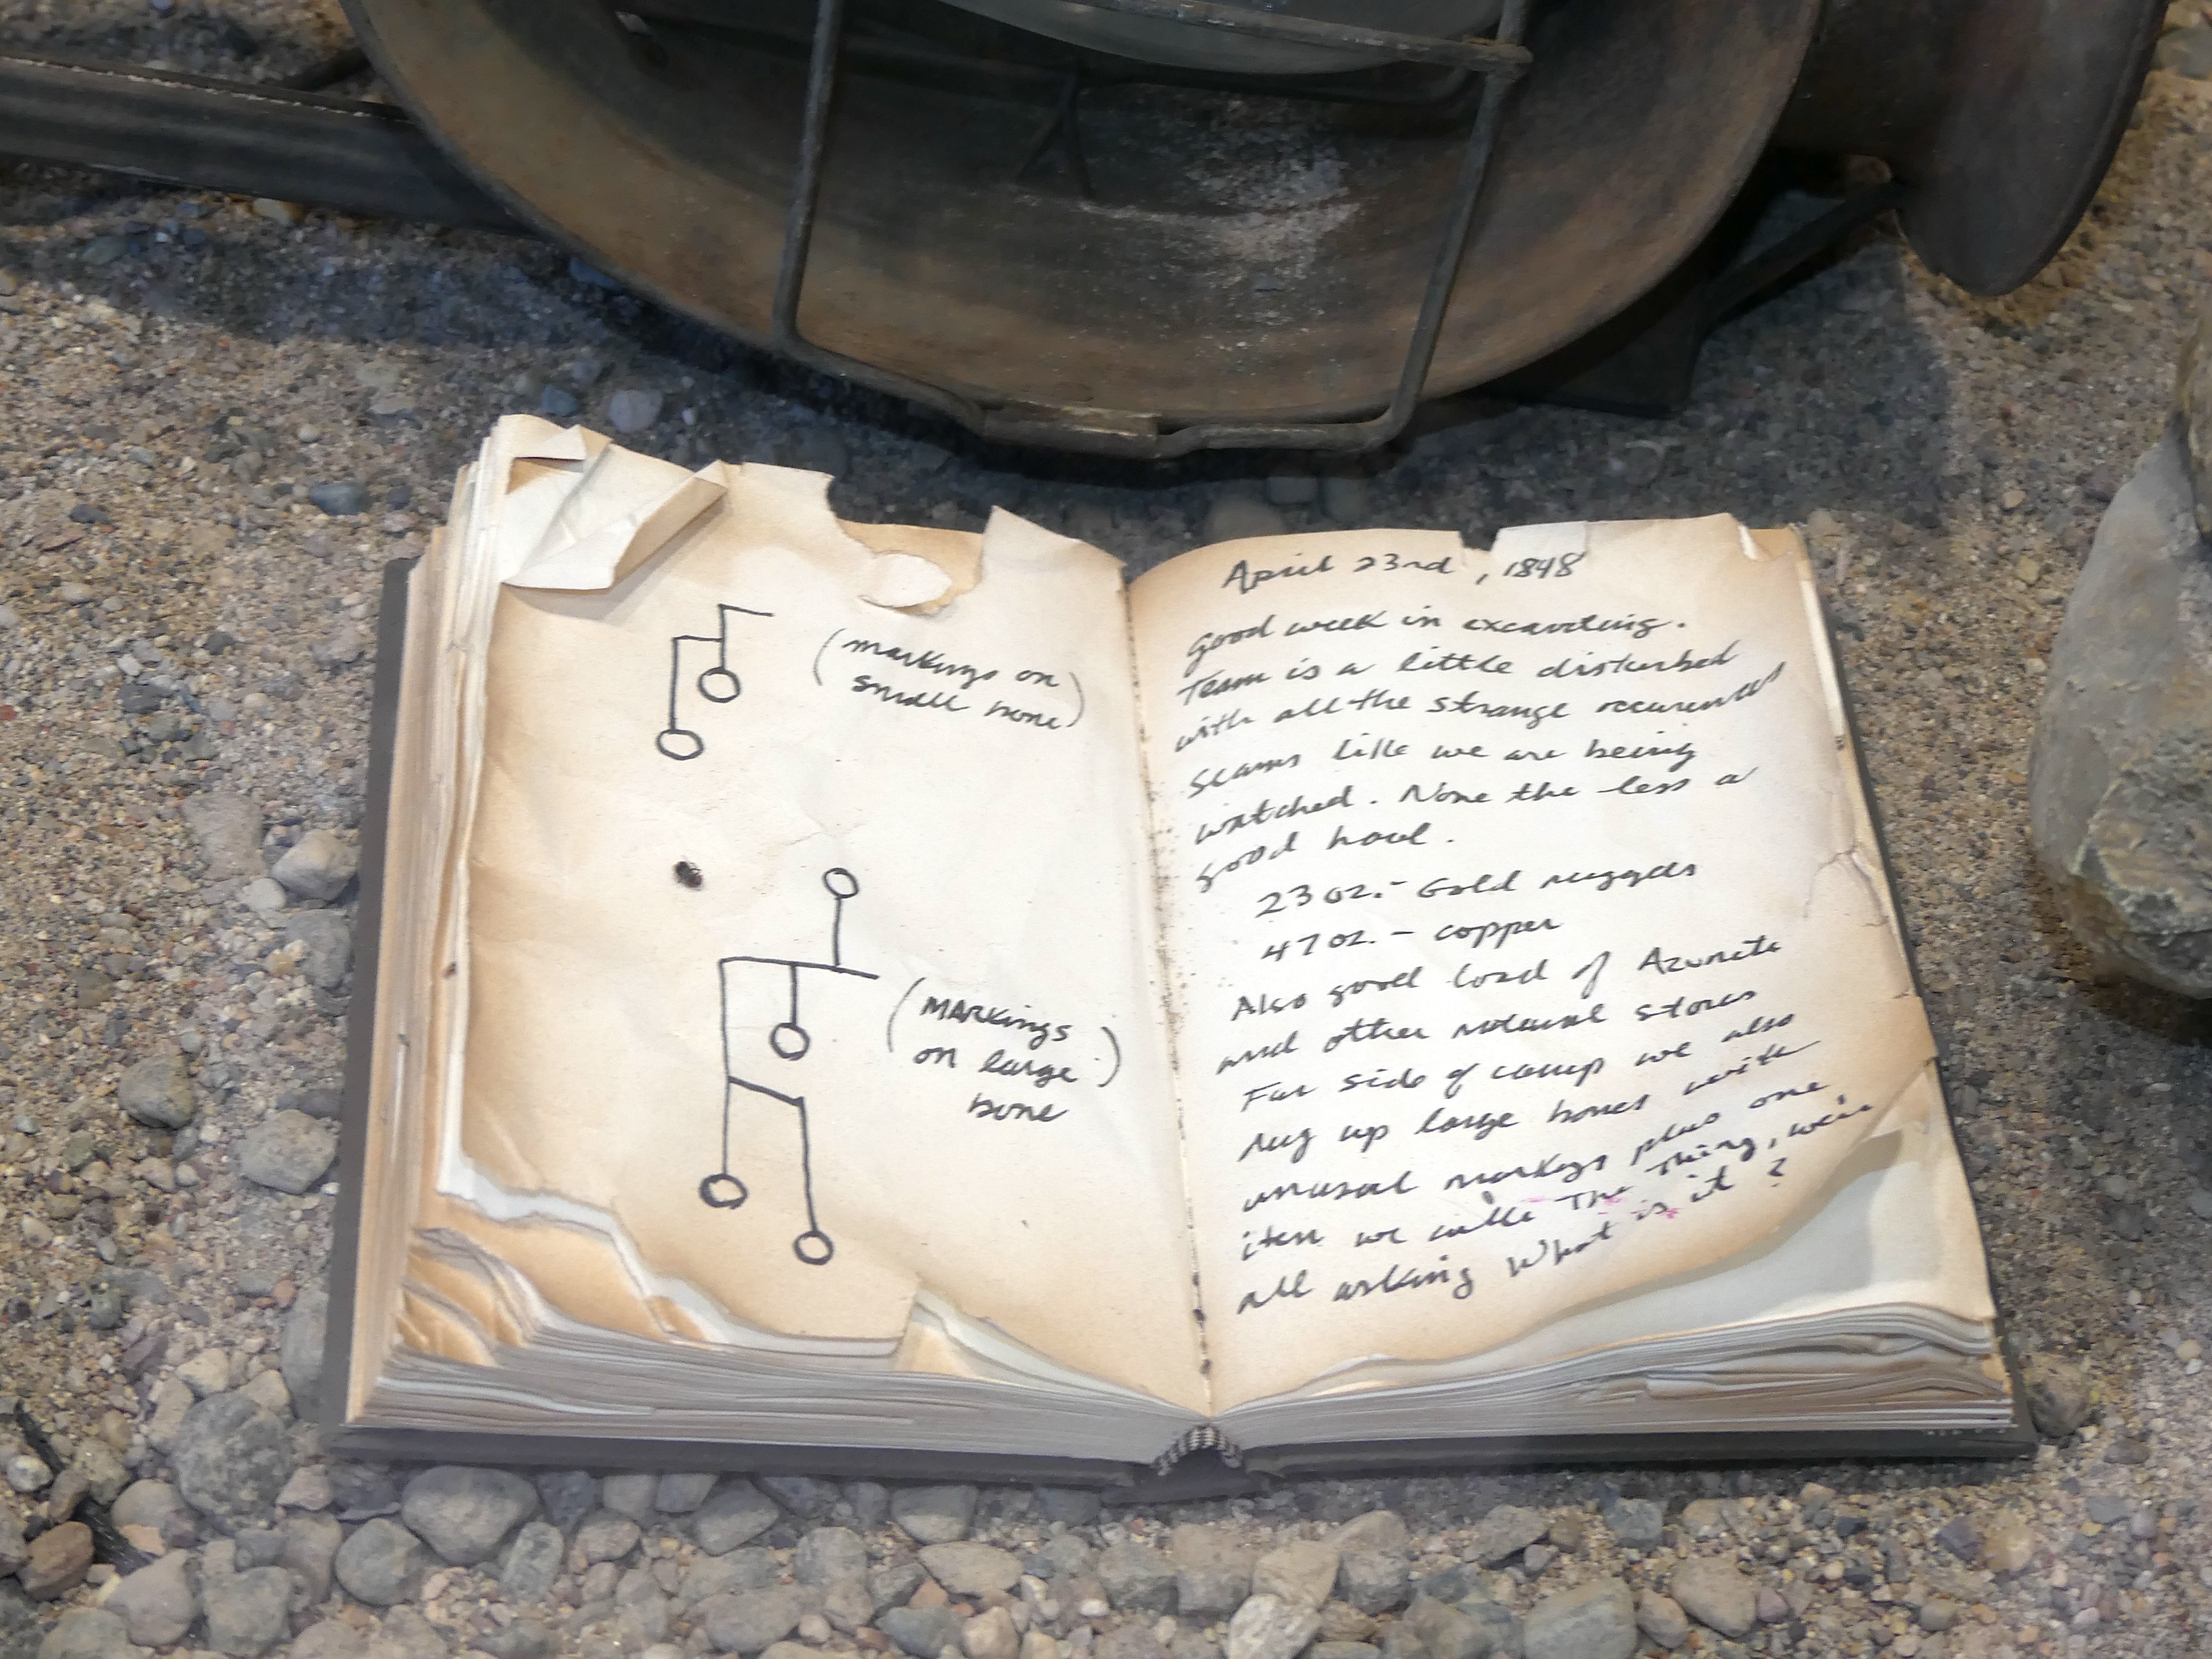 (markings on
small bone)
(MARKings
on large)
bone
April 23rd, 1848
Good week in excavating.
Team is a little disturbed
with all the strange occurences
Seams like we are being
watched. None the less a
good haul.
23 oz. - Gold nuggets
47 oz. - copper
Also good load of Azurite
and other natural stones
Far side of camp we also
dug up large bones with
unusual markings plus one
item we call The Thing, we're
all asking What is it?